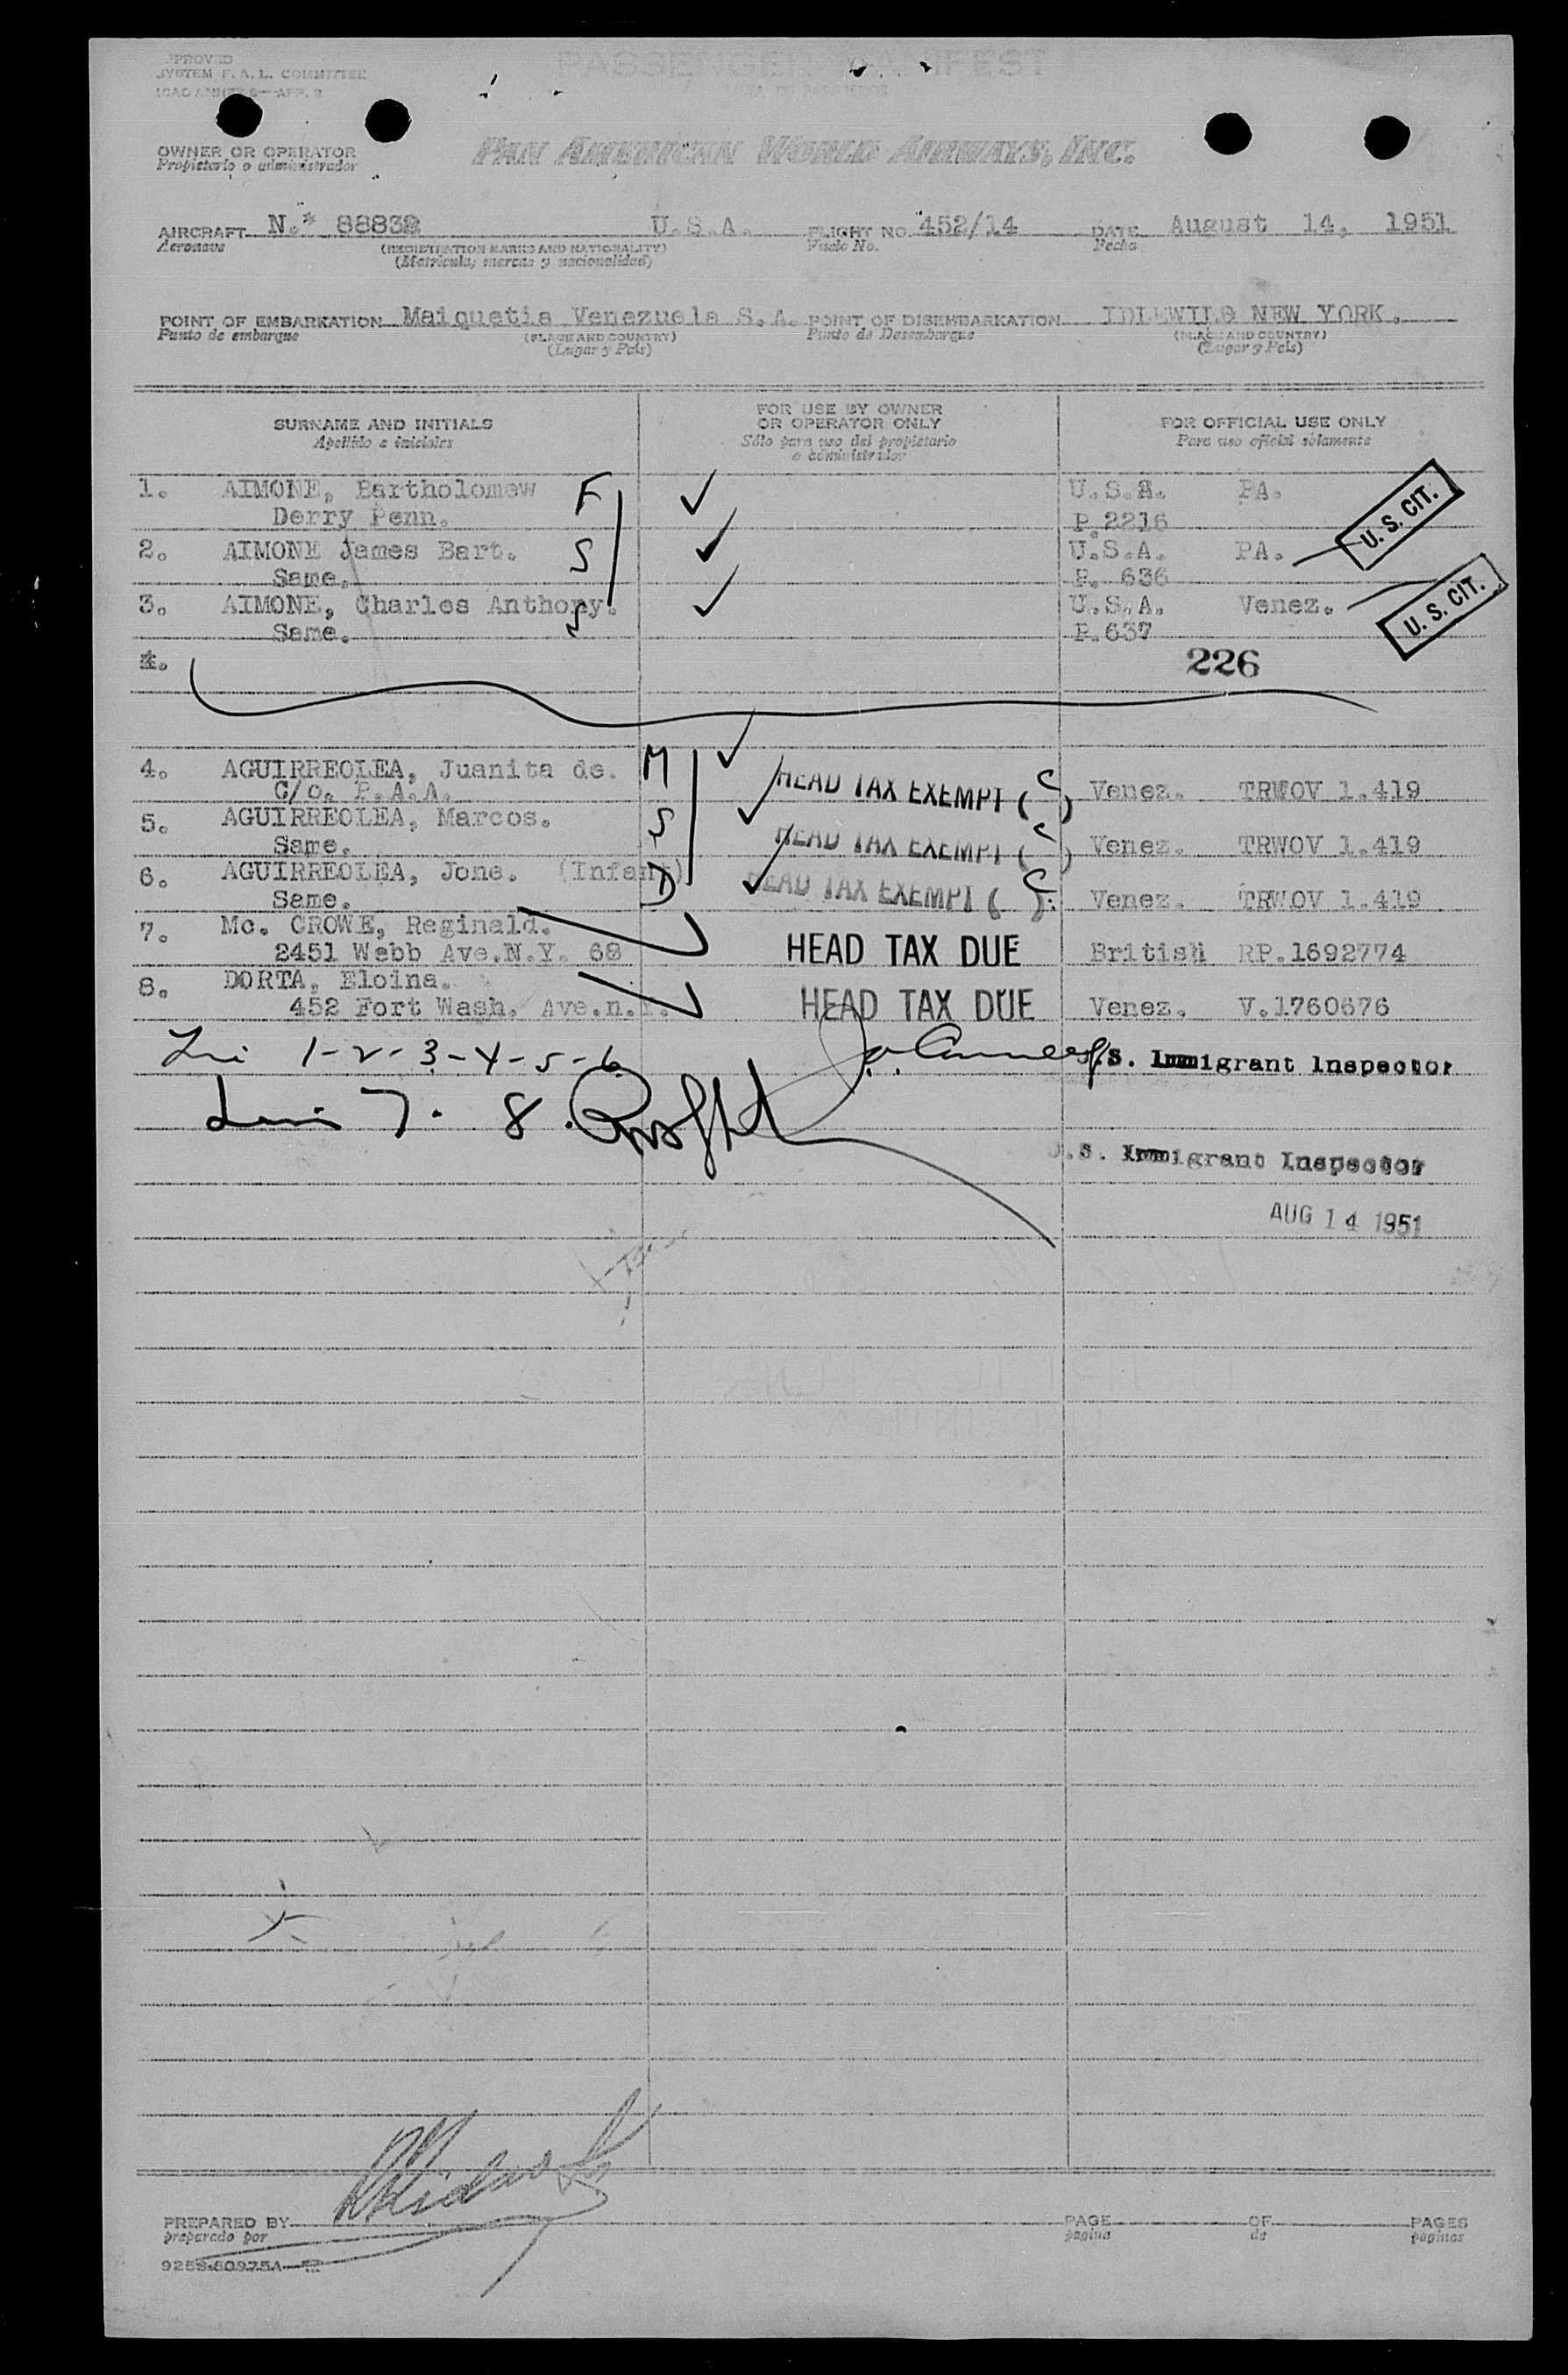 APPROVED
SYSTEM F. A. L. COMMITTEE
ICAO ANNEX 9—APP. 2
PASSENGER MANIFEST
LISTA DE PASAJEROS
OWNER OR OPERATOR
Propietario o administrador
PAN AMERICAN WORLD AIRWAYS, INC.
AIRCRAFT N.* 88832 U.S.A. FLIGHT NO. 452/14 DATE August 14, 1951
Aeronave (REGISTRATION MARKS AND NATIONALITY) Vuelo No. Fecha
(Matrícula, marcas y nacionalidad)
POINT OF EMBARKATION Maiquetia Venezuela S.A. POINT OF DISEMBARKATION IDLEWILD NEW YORK.
Punto de embarque (PLACE AND COUNTRY) Punto de Desembarque (PLACE AND COUNTRY)
(Lugar y País) (Lugar y País)
SURNAME AND INITIALS FOR USE BY OWNER OR OPERATOR ONLY FOR OFFICIAL USE ONLY
Apellido e iniciales Sólo para uso del propietario o administrador Para uso oficial solamente
1. AIMONE, Bartholomew F U.S.A. PA.
Derry Penn. P.2216
U. S. CIT.
2. AIMONE James Bart. S U.S.A. PA.
Same. P. 636
3. AIMONE, Charles Anthony. S U.S.A. Venez.
Same. P.637
U. S. CIT.
4. 226
4. AGUIRREOLEA, Juanita de. M
C/o. P.A.A. HEAD TAX EXEMPT (C) Venez. TRWOV 1.419
5. AGUIRREOLEA, Marcos. S
Same. HEAD TAX EXEMPT ( ) Venez. TRWOV 1.419
6. AGUIRREOLEA, Jone. (Infant) D
Same. HEAD TAX EXEMPT (C) Venez. TRWOV 1.419
7. Mc. CROWE, Reginald.
2451 Webb Ave.N.Y. HEAD TAX DUE British RP.1692774
8. DORTA, Eloina.
452 Fort Wash. Ave.n.Y. HEAD TAX DUE Venez. V.1760676
1-2-3-4-5-6 U.S. Immigrant Inspector
7. 8.
U.S. Immigrant Inspector
AUG 14 1951
PREPARED BY PAGE OF PAGES
preparado por página de páginas